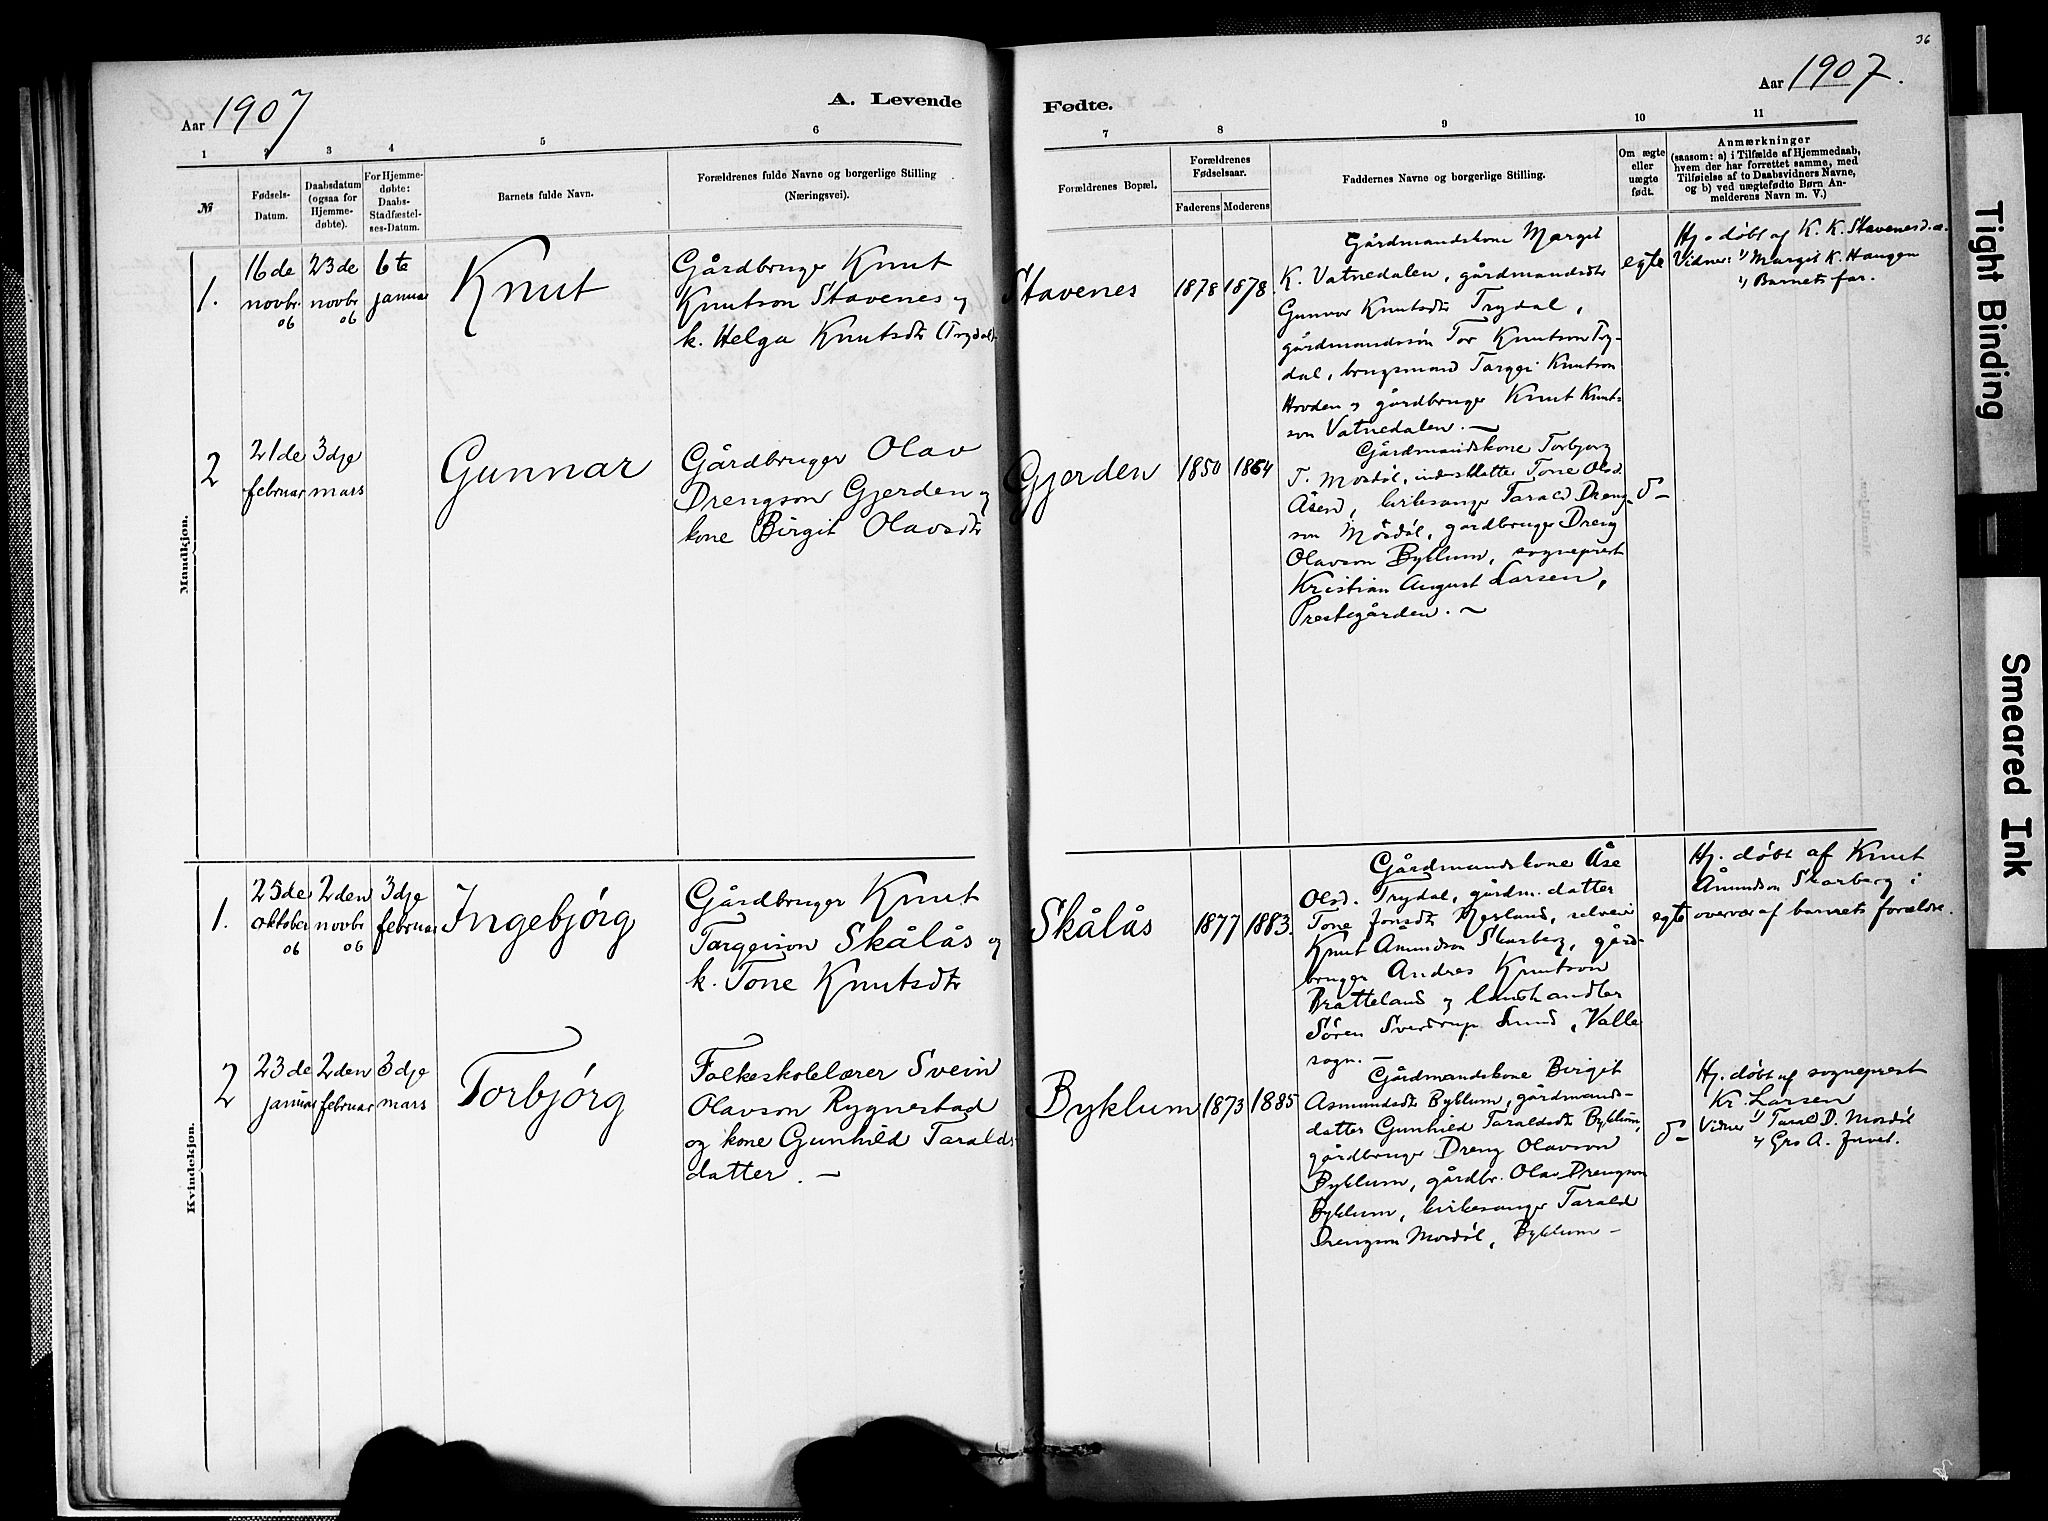 36
Aar 1907
A. Levende
Fødte.
Aar 1907.
1 2 3 4 5 6
7 8 9 10 11
№
Fødsels-
Datum.
Daabsdatum
(ogsaa for
Hjemme-
døbte).
For Hjemme-
døbte:
Daabs-
Stadfæstel-
ses-Datum.
Barnets fulde Navn.
Forældrenes fulde Navne og borgerlige Stilling
(Næringsvei).
Forældrenes Bopæl.
Forældrenes
Fødselsaar.
Faderens Moderens
Faddernes Navne og borgerlige Stilling.
Om ægte
eller
uægte
født.
Anmærkninger
(saasom: a) i Tilfælde af Hjemmedaab,
hvem der har forrettet samme, med
Tilføielse af to Daabsvidners Navne,
og b) ved uægtefødte Børn An-
melderens Navn m. V.)
Mandkjøn.
1.
16de
novbr.
06
23de
novbr
06
6te
januar
Knut
Gårdbruger Knut
Knutson Stavenes og
k. Helga Knutsdtr (Trydal)
Stavenes
1878
1878.
Gårdmandskone Margit
K. Vatnedalen, gårdmandsdtr
Gunvor Knutsdtr Trydal,
gårdmandssøn Tor Knutson Try-
dal, brugsmand Targei Knutson
Hovden og gårdbruger Knut Knut-
son Vatnedalen. —
egte
Hj. døbt af K. K. Stavenes
Vidner: 1/ Margit K. Haugen
2/ Barnets far.
2
21de
februar
3dje
mars
Gunnar
Gårdbruger Olav
Drengson Gjerden og
kone Birgit Olavsdtr
Gjerden
1850
1864
Gårdmandskone Torbjørg
T. Mosdøl, inderstdatter Tone Olsd.
Åsen, kirkesanger Tarald Dreng-
son Mosdøl, gårdbruger Dreng
Olavson Byklum, sogneprest
Kristian August Larsen,
Prestegården. —
d-
Kvindekjøn.
1.
25de
oktober
06
2den
novbr
06
3dje
februar
Ingebjørg
Gårdbruger Knut
Targeison Skålås og
k. Tone Knutsdtr
Skålås
1877
1883.
Gårdmandskone Åse
Olsd. Trydal, gårdm. datter
Tone Jonsdtr Nesland, selveier
Knut Åmundson Skarberg, gård-
bruger Andres Knutson
Bratteland og landhandler
Søren Sverdrup Lund, Valle
sogn. —
egte
Hj. døbt af Knut
Åmundson Skarberg i
overvær af barnets forældre.
2
23de
januar
2den
februar
3dje
mars
Torbjørg
Folkeskolelærer Svein
Olavson Rygnestad
og kone Gunhild Taralds-
datter. —
Byklum
1873
1885
Gårdmandskone Birgit
Asmundsdtr Byklum, gårdmands-
datter Gunhild Taraldsdtr Byklum,
gårdbruger Dreng Olavson
Byklum, gårdbr. Olav Drengson
Byklum, kirkesanger Tarald
Drengson Mosdøl, Byklum —
d-
Hj. døbt af sogneprest
Kr. Larsen
Vidner 1/ Tarald D. Mosdøl
2/ Gro A.
Tight Binding
Smeared Ink